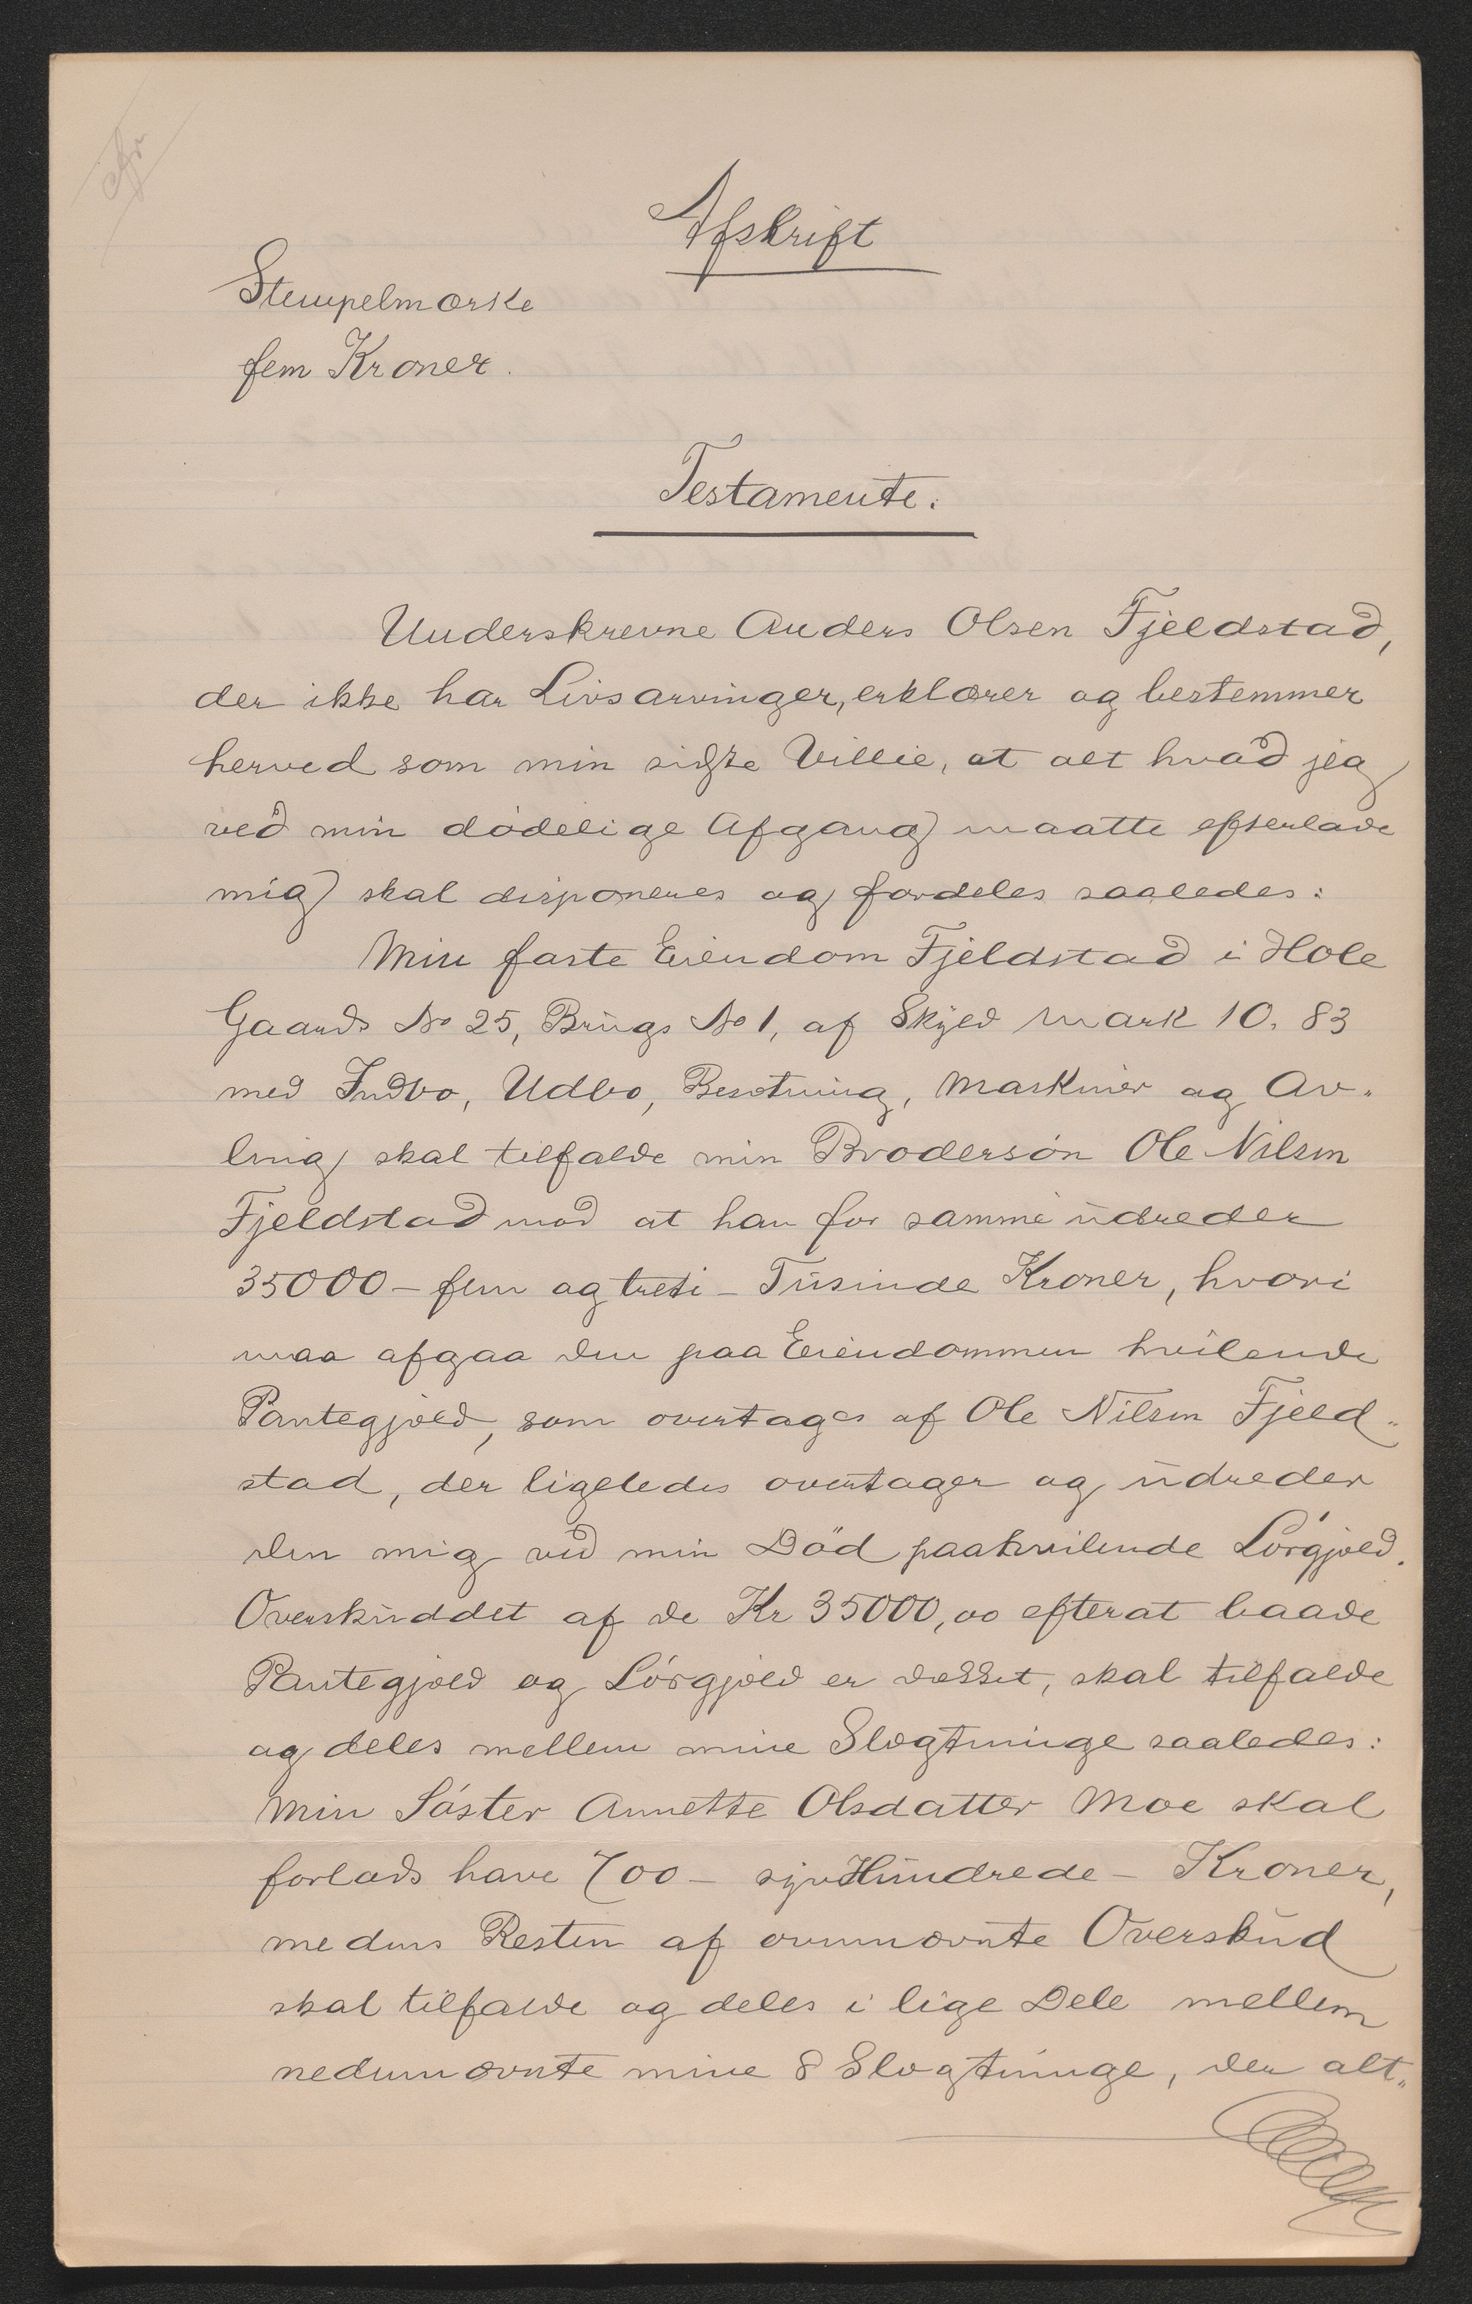 Afskrift
Stempelmærke
fem Kroner.
Testamente.
Underskrevne Anders Olsen Fjeldstad,
der ikke har Livsarvinger, erklærer og bestemmer
herved som min sidste Villie, at alt hvad jeg
ved min dødelige Afgang maatte efterlade
mig skal disponeres og fordeles saaledes:
Min faste Eiendom Fjeldstad i Hole
Gaards No 25, Brugs No 1, af Skyld Mark 10.83
med Indbo, Udbo, Besætning, Maskiner og Av-
ling skal tilfalde min Brodersøn Ole Nilsen
Fjeldstad mod at han for samme udreder
35000 - fem og treti - Tusinde Kroner, hvori
maa afgaa den paa Eiendommen hvilende
Pantegjæld, som overtages af Ole Nilsen Fjeld-
stad, der ligeledes overtager og udreder
den mig ved min Død paahvilende Løsgjæld.
Overskuddet af de Kr 35000,00 efterat baade
Pantegjæld og Løsgjæld er dækket, skal tilfalde
og deles mellem mine Slægtninge saaledes:
Min Søster Annette Olsdatter Moe skal
forlods have 700 - syv Hundrede - Kroner,
medens Resten af ovennævnte Overskud
skal tilfalde og deles i lige Dele mellem
nedennævnte mine 8 Slægtninge, der alt-